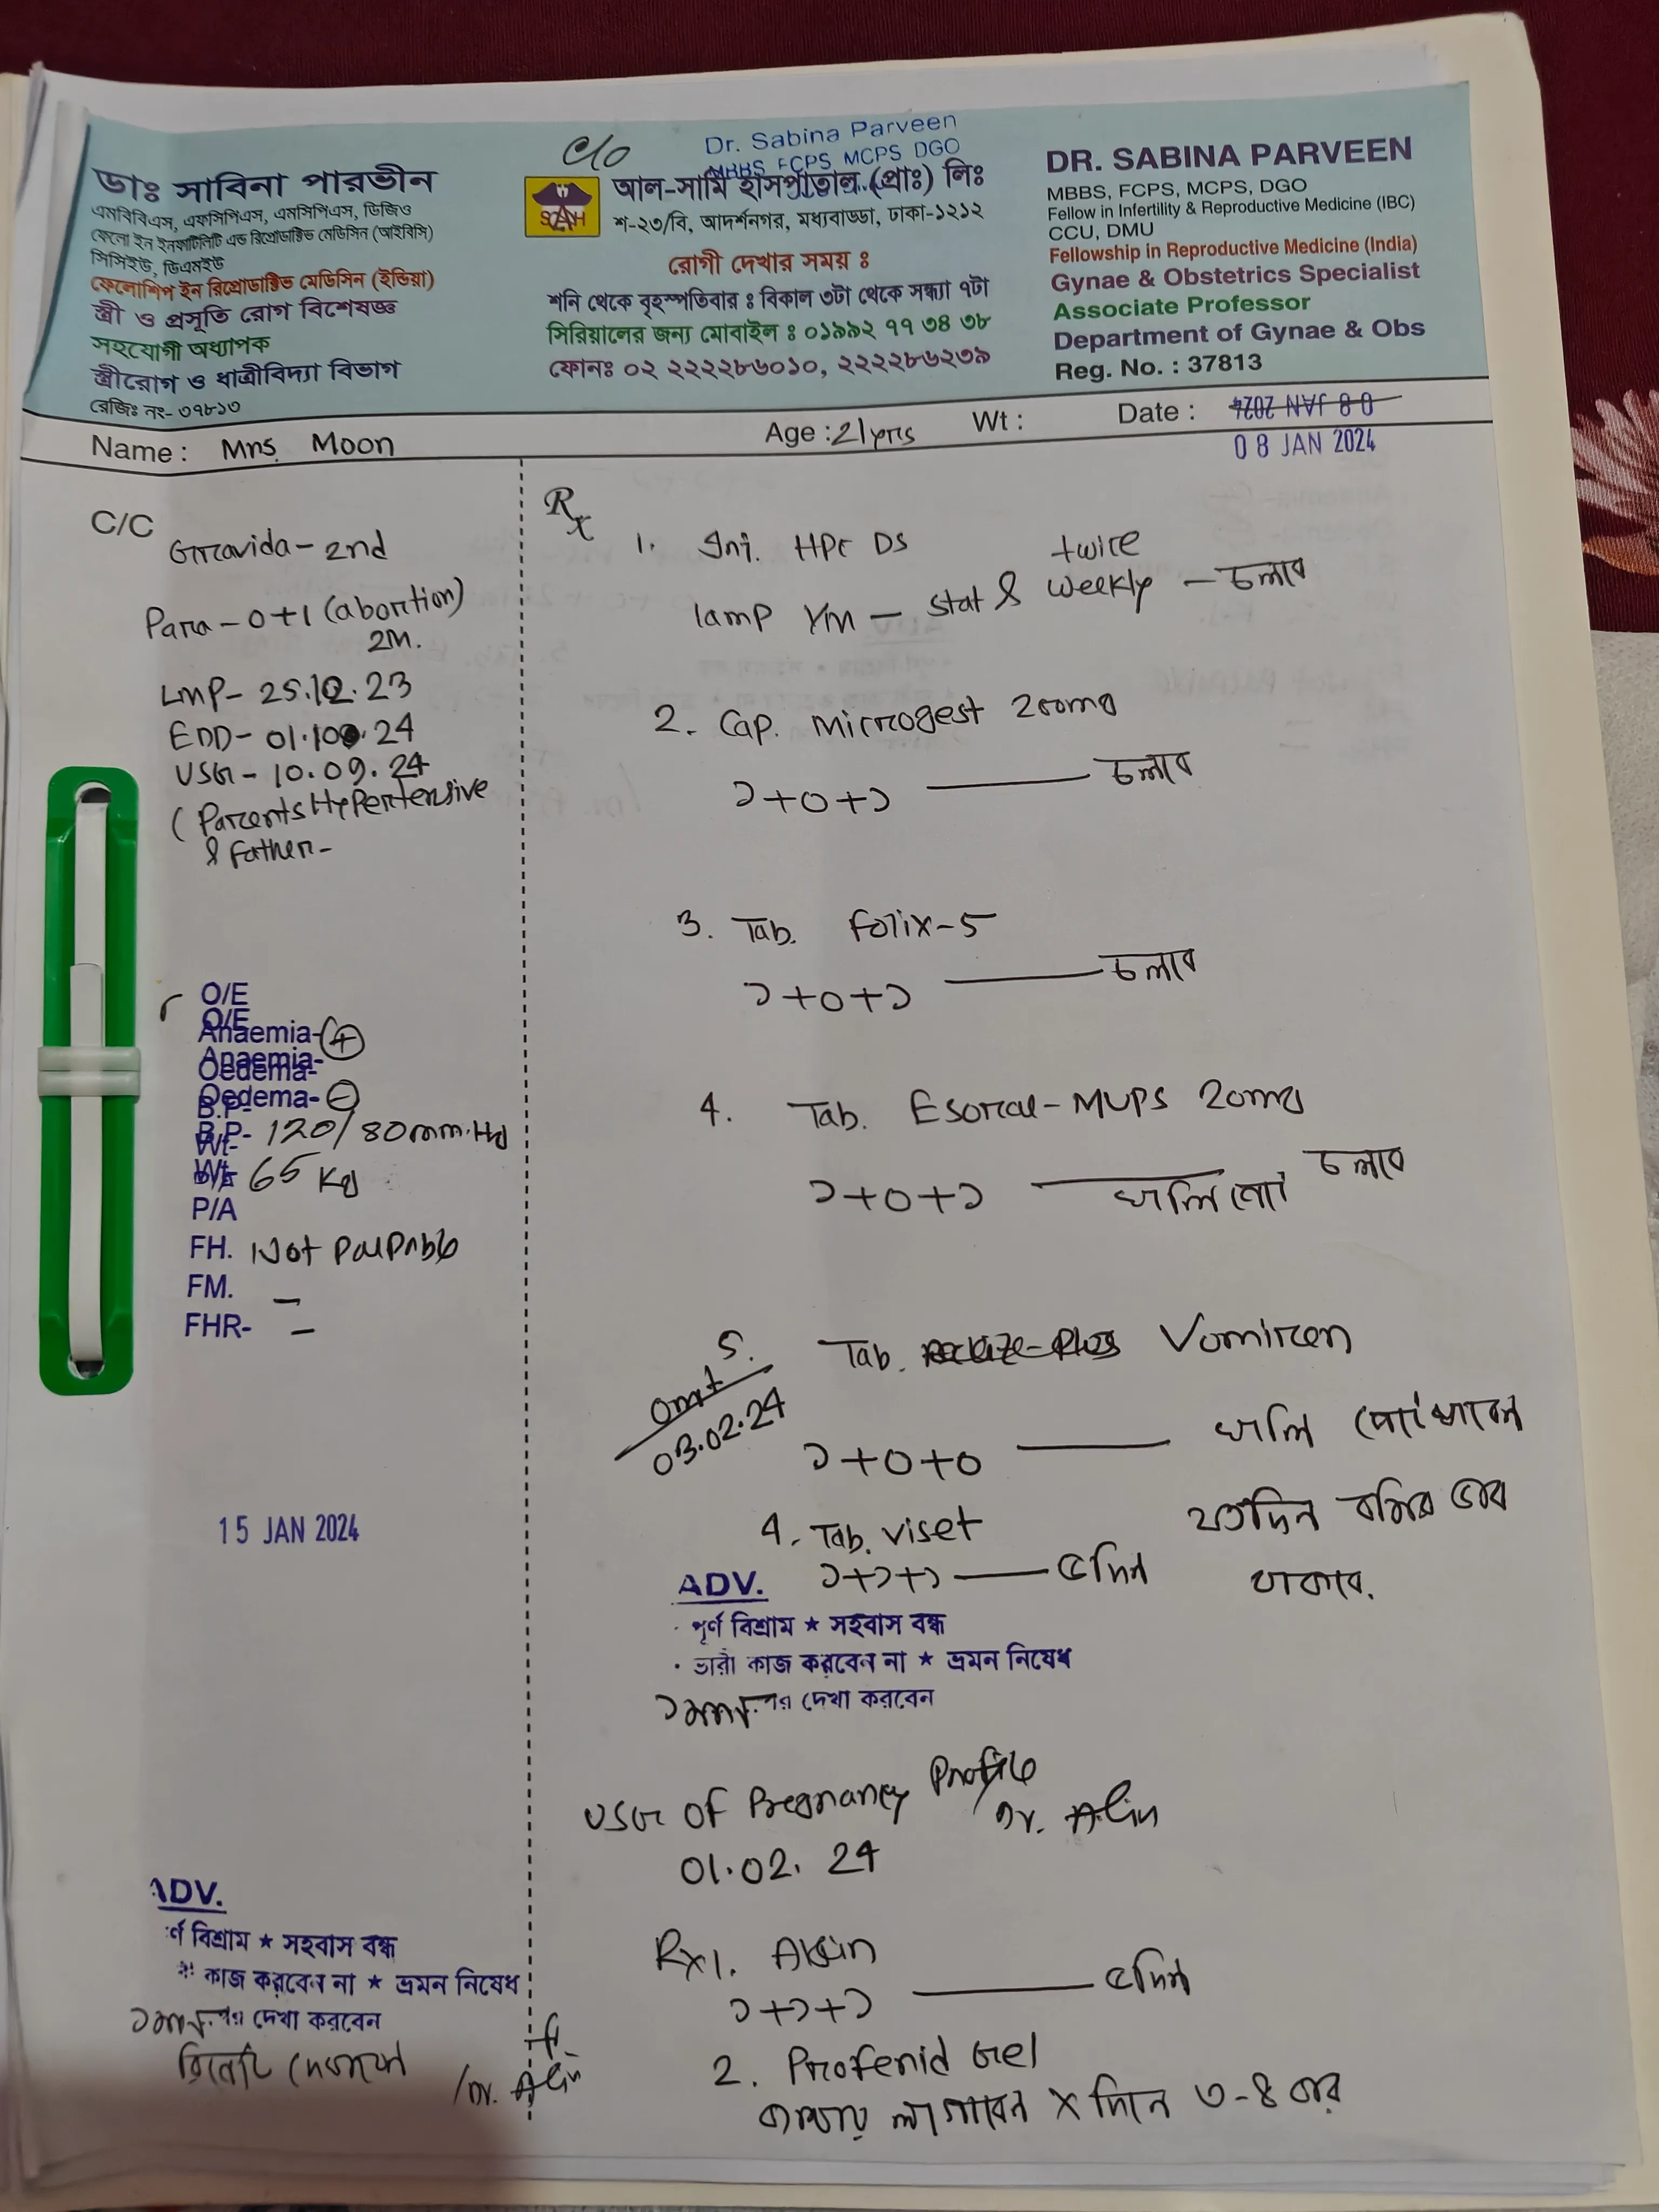 c/o
Dr. Sabina Parveen
MBBS FCPS MCPS DGO
ডাঃ সাবিনা পারভীন
এমবিবিএস, এফসিপিএস, এমসিপিএস, ডিজিও
ফেলো ইন ইনফার্টিলিটি এন্ড রিপ্রোডাক্টিভ মেডিসিন (আইবিসি)
সিসিইউ, ডিএমইউ
ফেলোশিপ ইন রিপ্রোডাক্টিভ মেডিসিন (ইন্ডিয়া)
স্ত্রী ও প্রসূতি রোগ বিশেষজ্ঞ
সহযোগী অধ্যাপক
স্ত্রীরোগ ও ধাত্রীবিদ্যা বিভাগ
রেজিঃ নং- ৩৭৮১৩
আল-সামি হাসপাতাল (প্রাঃ) লিঃ
শ-২৩/বি, আদর্শনগর, মধ্যবাড্ডা, ঢাকা-১২১২
রোগী দেখার সময় ঃ
শনি থেকে বৃহস্পতিবার ঃ বিকাল ৩টা থেকে সন্ধ্যা ৭টা
সিরিয়ালের জন্য মোবাইল ঃ ০১৯৯২ ৭৭ ৩৪ ৩৮
ফোনঃ ০২ ২২২২৮৬০১০, ২২২২৮৬২৩৯
DR. SABINA PARVEEN
MBBS, FCPS, MCPS, DGO
Fellow in Infertility & Reproductive Medicine (IBC)
CCU, DMU
Fellowship in Reproductive Medicine (India)
Gynae & Obstetrics Specialist
Associate Professor
Department of Gynae & Obs
Reg. No. : 37813
Name : Mrs. Moon Age : 21yrs Wt : Date : 08 JAN 2024
08 JAN 2024
C/C
Gravida - 2nd
Para - 0+1 (abortion)
2M.
LMP - 25.12.23
EDD - 01.10.24
USG - 10.09.24
(Parents Hypertensive
& Father -
O/E
O/E
Anaemia- +
Anaemia-
Oedema-
Oedema- -
B.P-
B.P- 120/80 mm.Hg
Wt-
Wt- 65 Kg
P/A
FH. Not Palpable
FM. -
FHR- -
15 JAN 2024
ADV.
র্ণ বিশ্রাম ★ সহবাস বন্ধ
কাজ করবেন না ★ ভ্রমন নিষেধ
১মাস পর দেখা করবেন
/Dr. Alin
Rx
1. Inj. HPC DS
twice
1amp I/M - stat & weekly - চলবে
2. Cap. Microgest 200mg
১+০+১ চলবে
3. Tab. Folix-5
১+০+১ চলবে
4. Tab. Esoral-MUPS 20mg
১+০+১ খালি পেটে চলবে
5. Tab. Vomiren
omit
03.02.24
১+০+০ খালি পেটে খাবেন
যতদিন বমির ভাব
থাকবে.
4. Tab. Viset
১+১+১ ৫দিন
ADV.
· পূর্ণ বিশ্রাম ★ সহবাস বন্ধ
· ভারী কাজ করবেন না ★ ভ্রমন নিষেধ
১মাস পর দেখা করবেন
USG OF Pregnancy Profile
Dr. Alin
01.02.24
Rx 1. Algin
১+১+১ ৫দিন
2. Profenid Gel
লাগাবেন X দিনে ৩-৪ বার